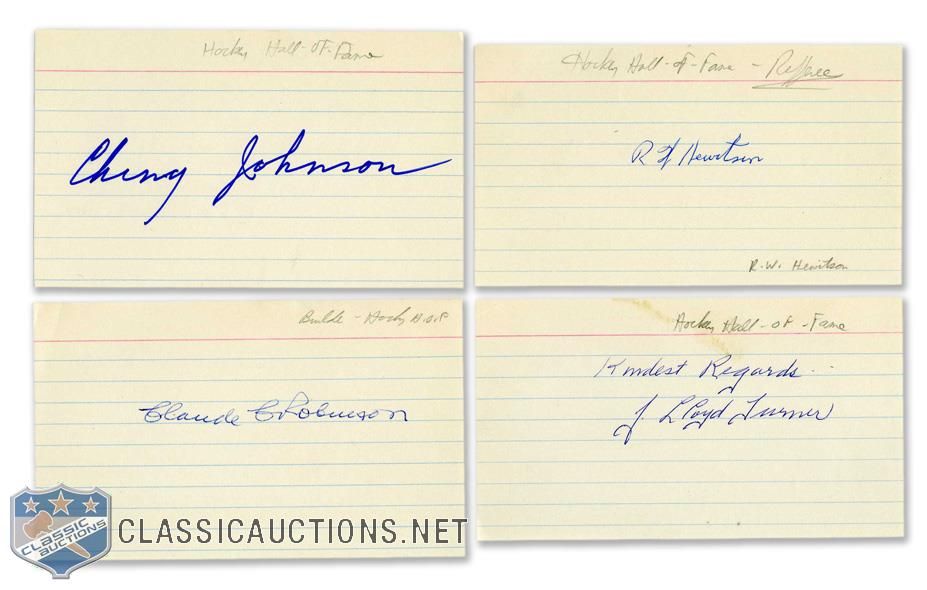 Hockey Hall-OF-Fame
Ching Johnson
Hockey Hall-of-Fame - Refferee
R W Hewitson
R.W. Hewitson
Builde - Hocky H.O.F
Claude C Robinson
Hockey Hall-OF-Fame
Kindest Regards
J Lloyd Turner
CLASSIC AUCTIONS
CLASSICAUCTIONS.NET